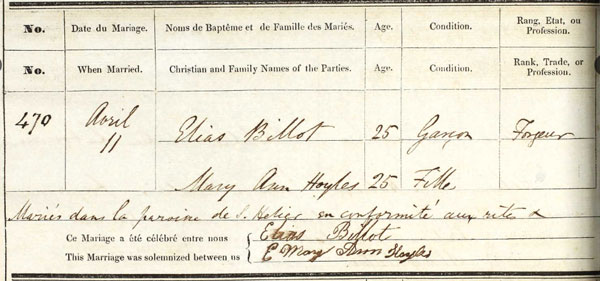 No. Date du Mariage. Noms de Baptême et de Famille des Mariés. Age. Condition. Rang, Etat, ou Profession.
No. When Married. Christian and Family Names of the Parties. Age. Condition. Rank, Trade, or Profession.
470 Avril 11 Elias Billot 25 Garçon Forgeur
Mary Ann Hoyles 25 Fille
Mariés dans la paroisse de S. Helier en conformité aux rites
Ce Mariage a été célébré entre nous Elias Billot
This Marriage was solemnized between us Mary Ann Hoyles